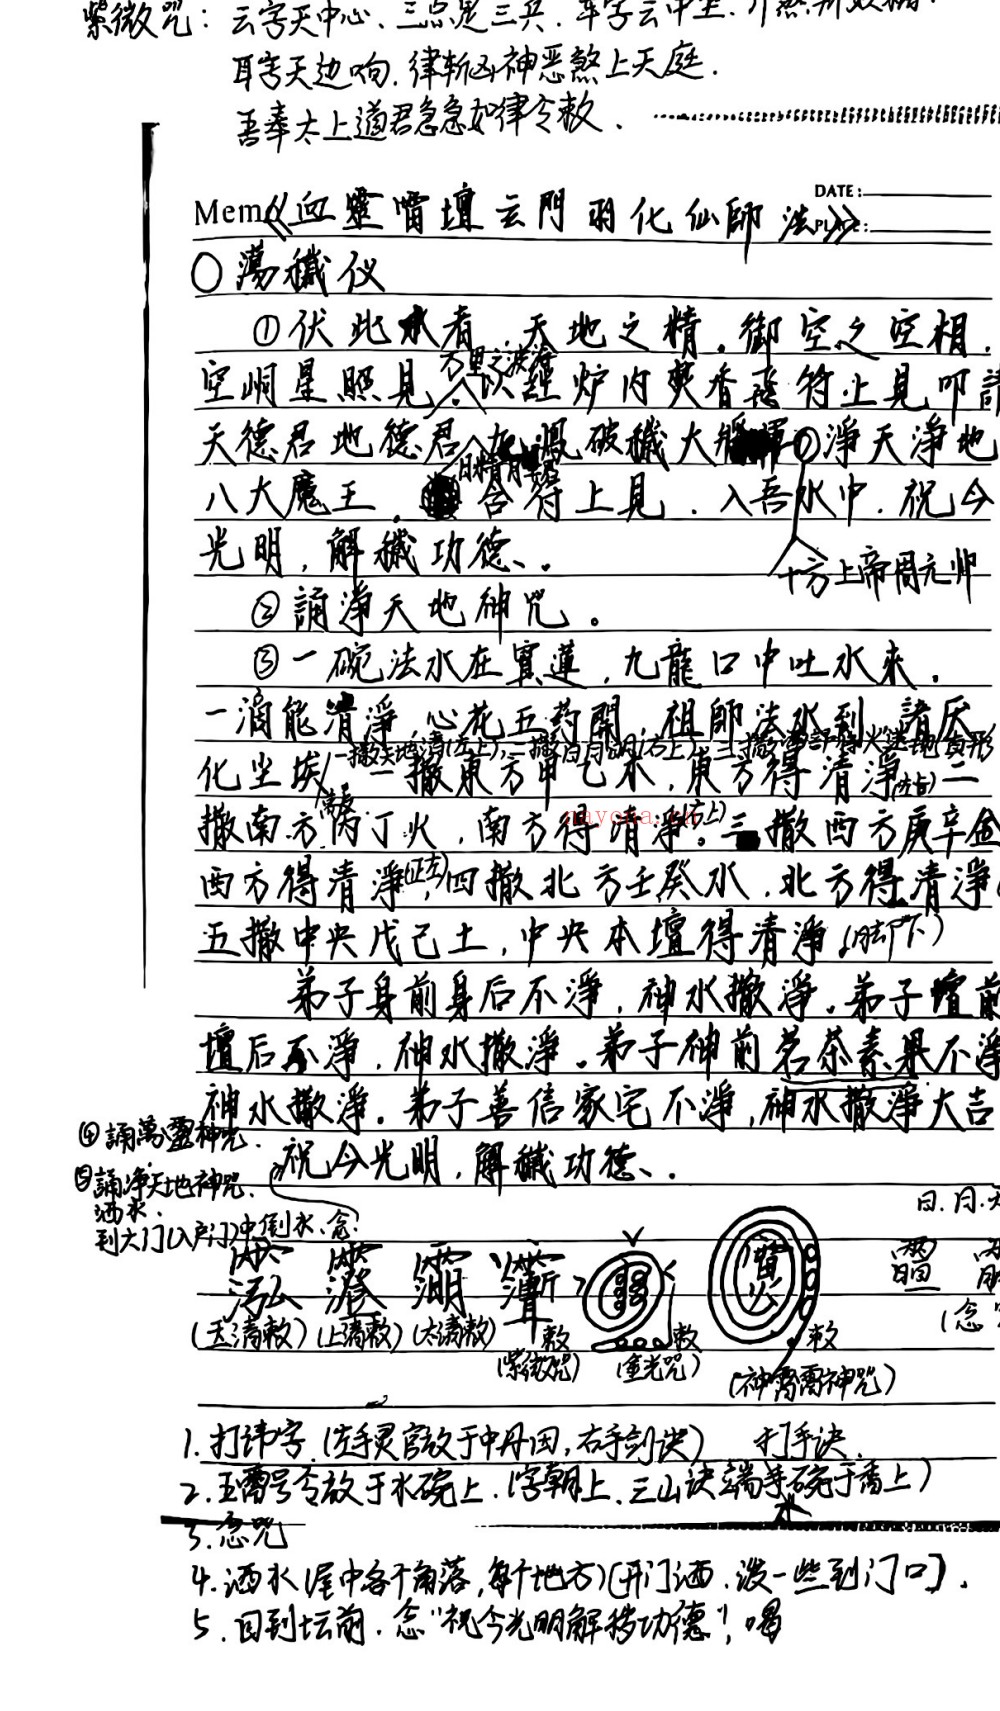 紫微咒：云字天中心．三点是三兵．车字云中坐．
耳害天边响．律斩凶神恶煞上天庭．
吾奉太上道君急急如律令敕．
DATE:
Memo
《血靈雷壇云門羽化仙師法》
PLACE:
○蕩穢仪
①伏此水者．天地之精。御空之空相．
万里之波海
空峒星照見．以經炉内焚香飛符上見叩請
天德君地德君九鳳破穢大將軍淨天淨地
日精月君
八大魔王．含符上見．入吾水中．祝今
光明，解穢功德、。
十方上帝周元帅
②誦淨天地神咒。
③一碗法水在寶蓮，九龍口中吐水來．
一滴能清淨，心花五葯開，祖師法水到，諸厌
一撒天地清(左上)，二撒日月明(右上)，三撒
化尘埃，一撒東方甲乙木，東方得清淨 二
撒南方丙丁火，南方得清淨。三撒西方庚辛金
mayona.cn
西方得清淨(正左)，四撒北方壬癸水．北方得清淨
五撒中央戊己土，中央本壇得清淨(脚下)
弟子身前身后不淨，神水撒淨。弟子壇前
壇后不淨，神水撒淨。弟子神前茗茶素果不淨
神水撒淨。弟子善信家宅不淨，神水撒淨大吉
④誦萬靈神咒．
祝今光明，解穢功德、．
⑤誦净天地神咒．
洒水．
到大门(入户门)中倒水、念：
日．月．
(玉清敕) (上清敕) (太清敕)
敕 敕 敕
(念
(紫微咒) (金光咒) (神霄雷神咒)
1．打讳字．(左手灵官放于中丹田，右手剑诀) 打手诀．
2．玉雷号令放于水碗上．(字朝上．三山诀端水碗于香上)
3．念咒
4．洒水(屋中各个角落，每个地方)[开门洒．泼一些到门口]．
5．回到坛前．念“祝今光明解秽功德”，喝